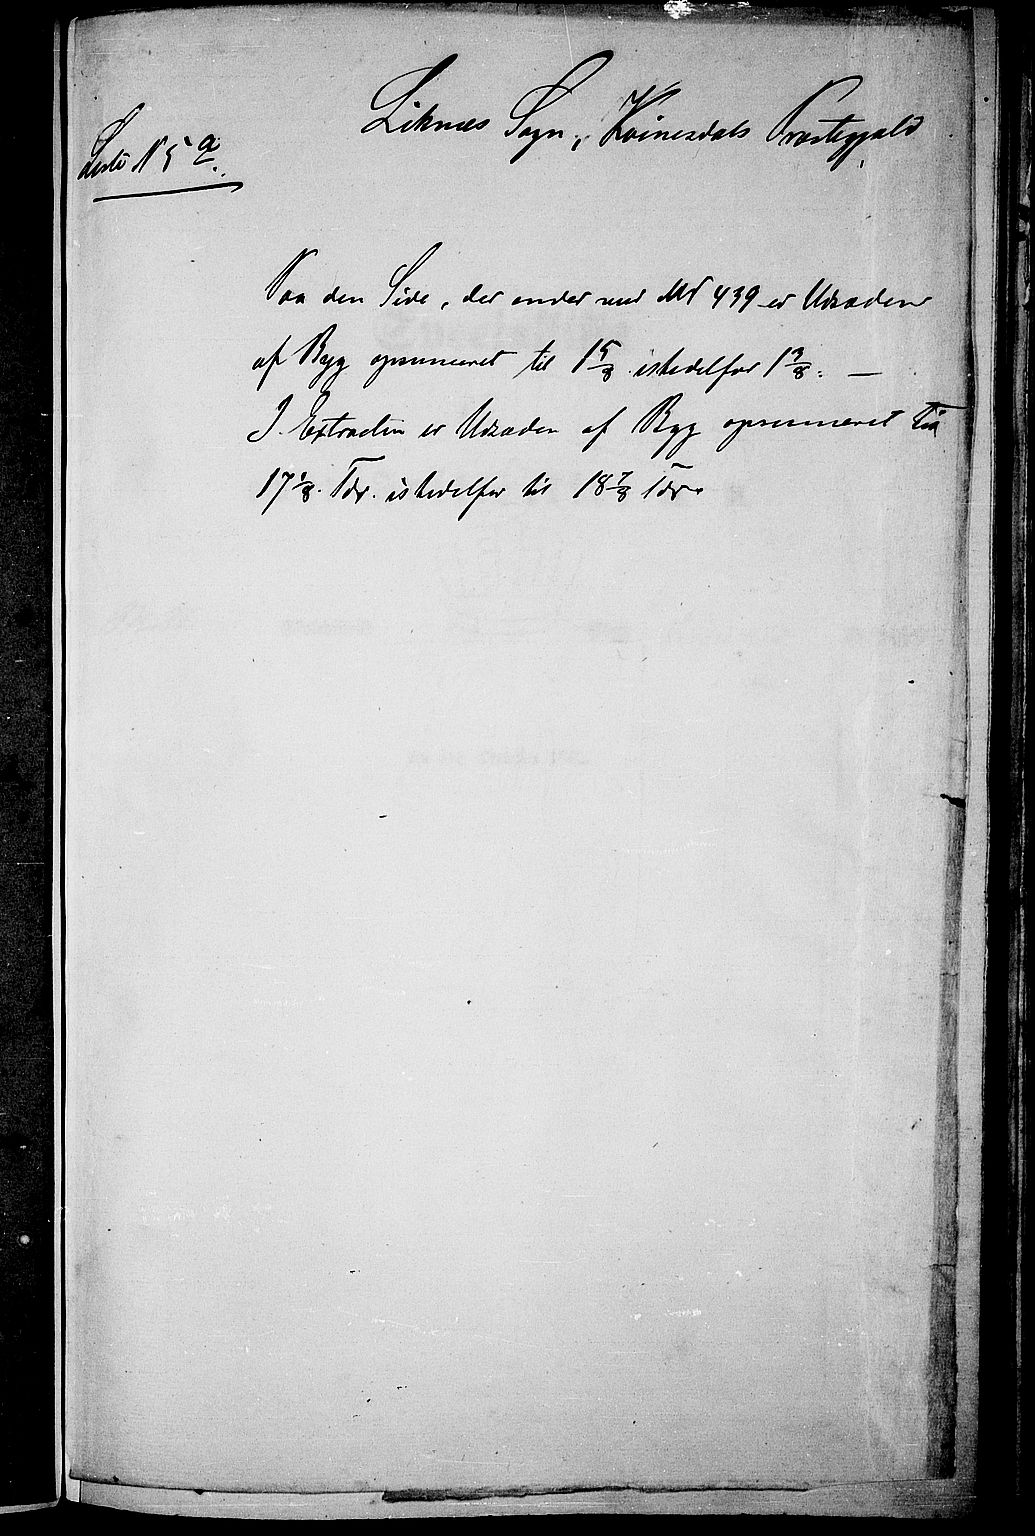 Liknes Sogn, Kvinesdals Præstegjæld
Liste N 5 a.
Paa den Side, der ender med M N 439 er Udsæden
af Byg opsumeret til 1 5/8 istedelfor 1 3/8. —
I Extracten er Udsæden af Byg opsumeret til
17 1/8 Tdr. istedelfor til 18 7/8 Tdr.